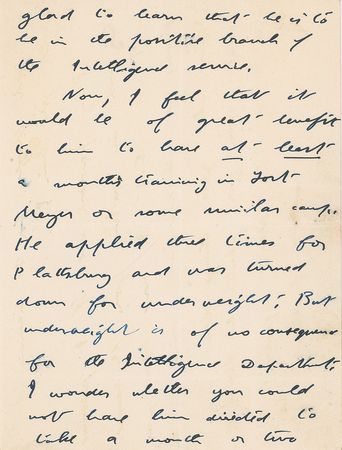 glad to learn that he is to
be in the positive branch of
the Intelligence service.
Now, I feel that it
would be of great benefit
to him to have at least
a month's training in Fort
Meyer or some similar camp.
He applied three times for
Plattsburg and was turned
down for underweight; But
underweight is of no consequence
for the Intelligence Department.
I wonder whether you could
not have him directed to
take a month or two